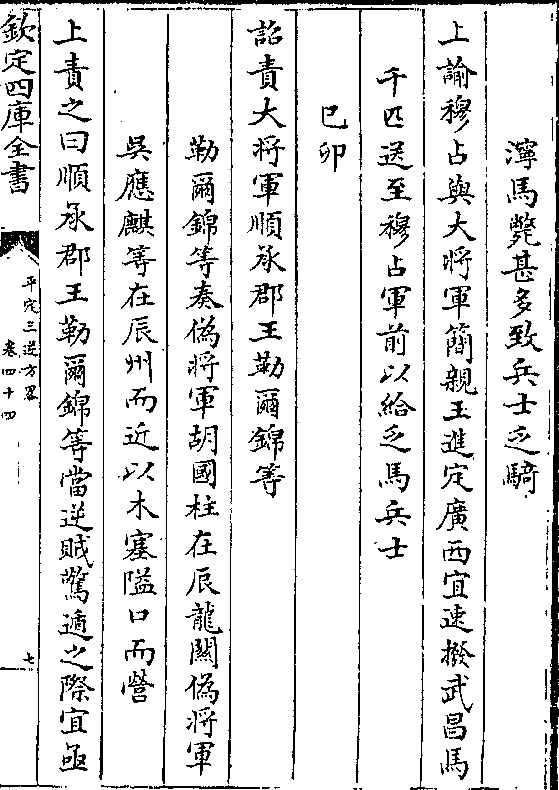 濘馬斃甚多致兵士乏騎
上諭穆占與大將軍簡親王進定廣西宜速撥武昌馬
千匹送至穆占軍前以給乏馬兵士
已卯
詔責大將軍順承郡王勒爾錦等
勒爾錦等奏偽將軍胡國柱在辰龍關偽將軍
吳應麒等在辰州而近以木塞隘口而營
上責之曰順承郡王勒爾錦等當逆賊驚遁之際宜亟
欽定四庫全書
平定三逆方畧
卷四十四
七